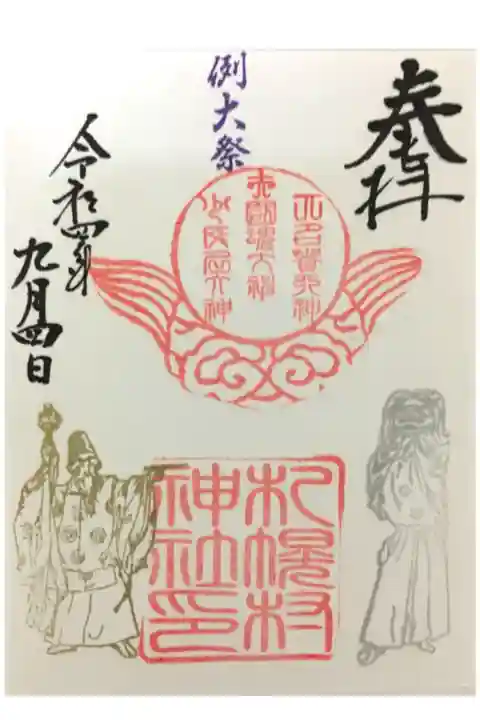 奉拝
例大祭
大國魂大神
少彦名大神
令和四年
九月四日
札幌村
神社印